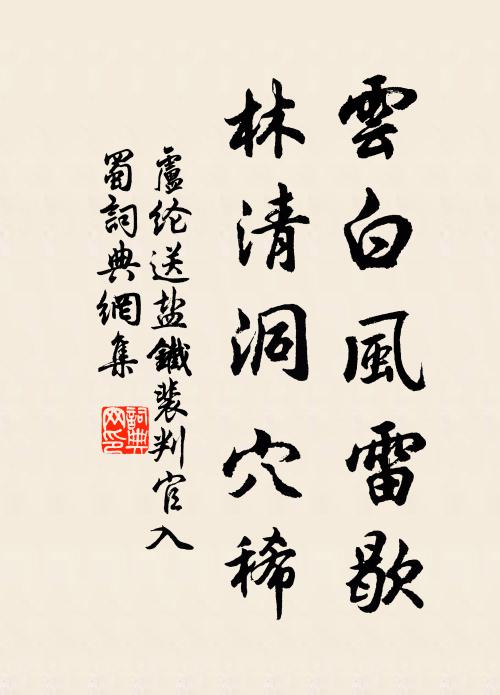 雲白風雷歇
林清洞穴稀
盧纶送盐鐵裴判官入
蜀詞典網集
詞典网印